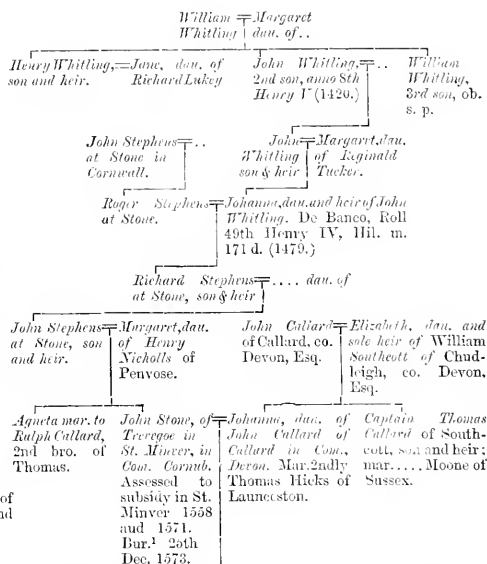 William Margaret
Whitling dau. of..
Henry Whitling, Jane, dau. of
son and heir. Richard Lukey
John Whitling, ..
2nd son, anno 8th
Henry V (1420.)
William
Whitling,
3rd son, ob.
s. p.
John Stephens ..
at Stone in
Cornwall.
John Margaret, dau.
Whitling of Reginald
son & heir Tucker.
Roger Stephens
at Stone.
Johanna, dau. and heir of John
Whitling. De Banco, Roll
49th Henry IV, Hil. m.
171 d. (1479.)
Richard Stephens .... dau. of
at Stone, son & heir
John Stephens
at Stone, son
and heir.
Margaret, dau.
of Henry
Nicholls of
Penvose.
John Callard
of Callard, co.
Devon, Esq.
Elizabeth, dau. and
sole heir of William
Southcott of Chud-
leigh, co. Devon,
Esq.
Agneta mar. to
Ralph Callard,
2nd bro. of
Thomas.
John Stone, of
Trevegoe in
St. Minver, in
Com. Cornub.
Assessed to
subsidy in St.
Minver 1558
and 1571.
Bur.¹ 25th
Dec. 1573.
Johanna, dau. of
John Callard of
Callard in Com.,
Devon. Mar. 2ndly
Thomas Hicks of
Launceston.
Captain Thomas
Callard of South-
cott, son and heir;
mar..... Moone of
Sussex.
of
nd